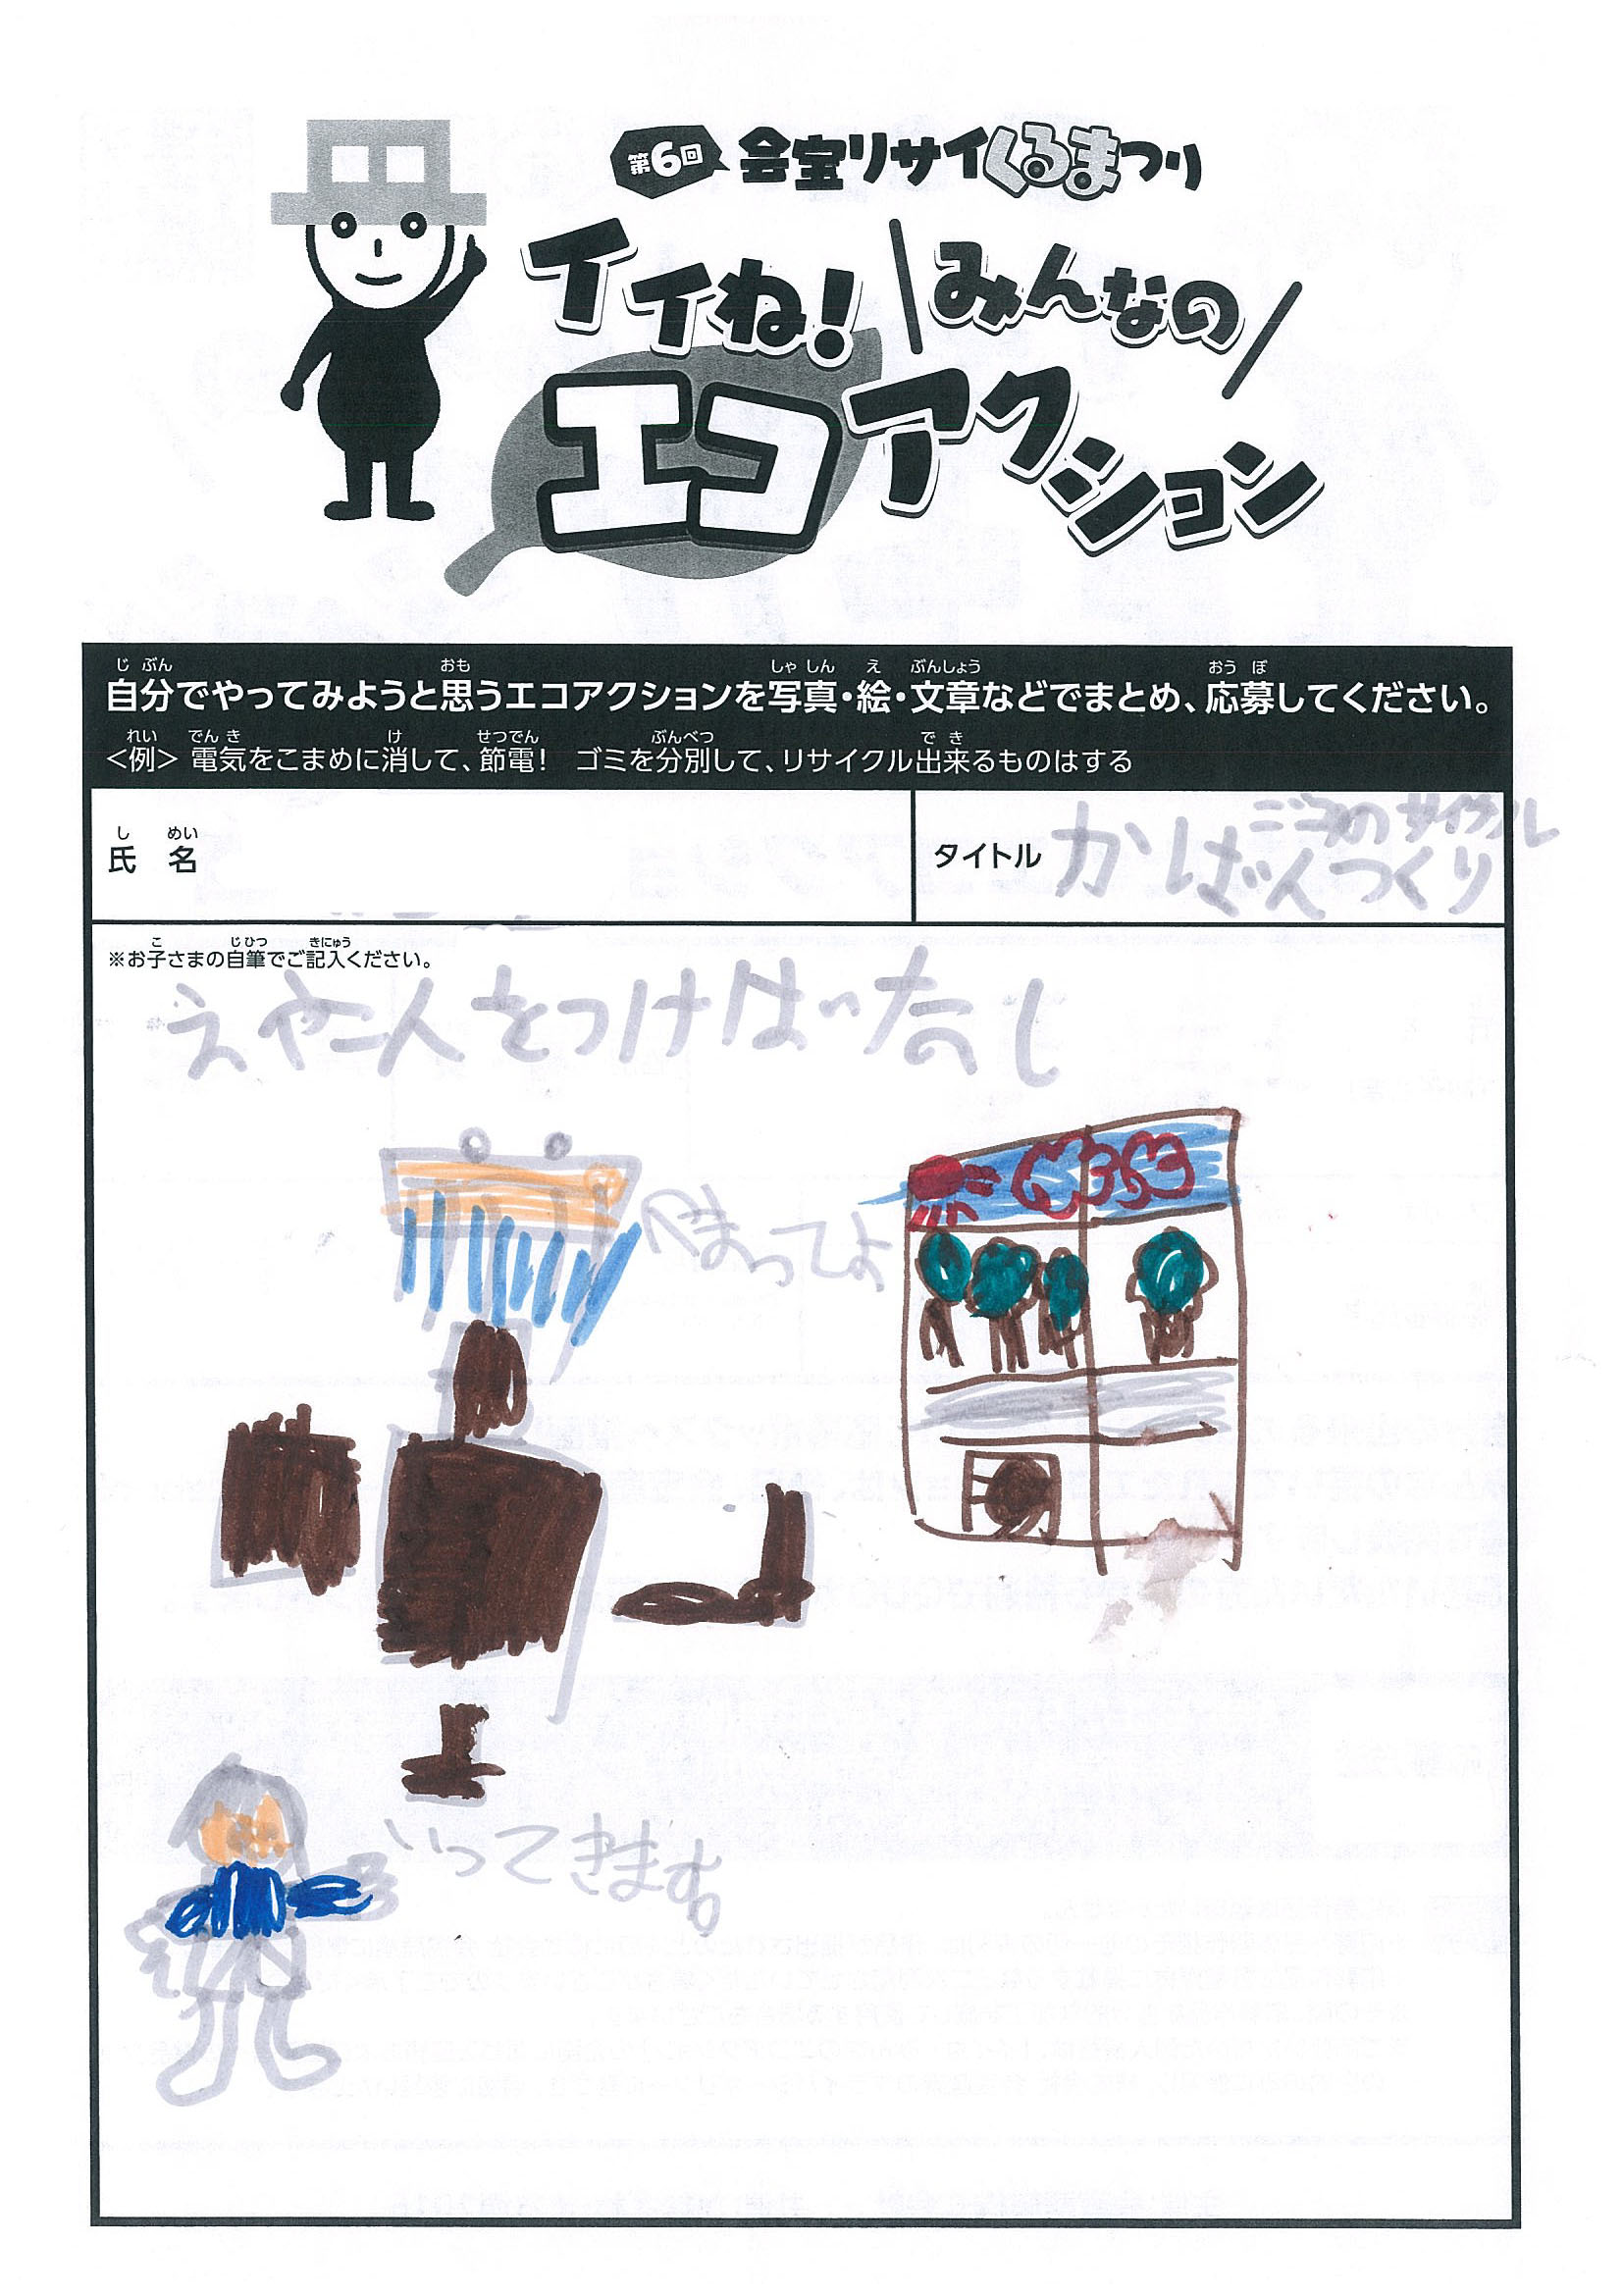 第6回 会宝リサイくるまつり
イイね! みんなの
エコアクション
自分でやってみようと思うエコアクションを写真・絵・文章などでまとめ、応募してください。
<例> 電気をこまめに消して、節電! ゴミを分別して、リサイクル出来るものはする
氏名
タイトル
かばんつくり
※お子さまの自筆でご記入ください。
をつければたのし
まってよ
いってきます。